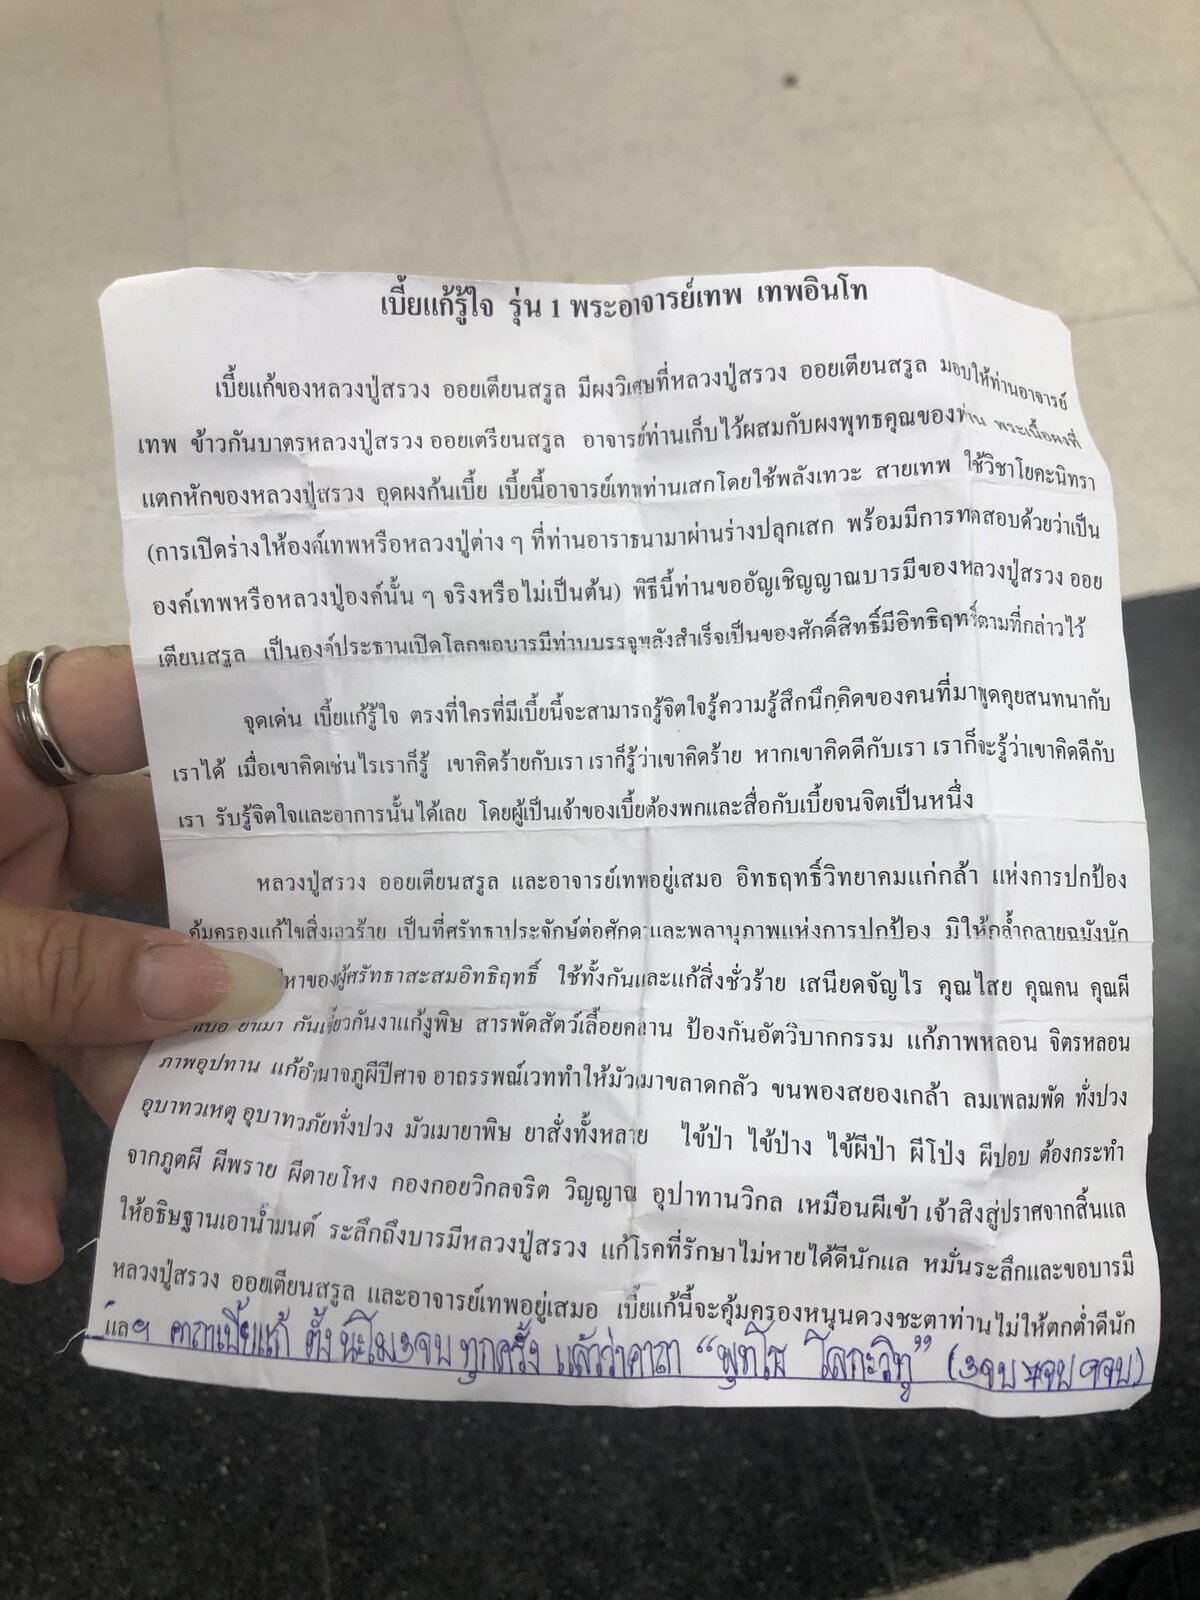 เบี้ยแก้รู้ใจ รุ่น 1 พระอาจารย์เทพ เทพอินโท
เบี้ยแก้ของหลวงปู่สรวง ออยเตียนสรูล มีผงวิเศษที่หลวงปู่สรวง ออยเตียนสรูล มอบให้ท่านอาจารย์
เทพ ข้าวก้นบาตรหลวงปู่สรวง ออยเตรียนสรูล อาจารย์ท่านเก็บไว้ผสมกับผงพุทธคุณของท่าน พระเนื้อผงที่
แตกหักของหลวงปู่สรวง อุดผงก้นเบี้ย เบี้ยนี้อาจารย์เทพท่านเสกโดยใช้พลังเทวะ สายเทพ ใช้วิชาโยคะนิทรา
(การเปิดร่างให้องค์เทพหรือหลวงปู่ต่าง ๆ ที่ท่านอาราธนามาผ่านร่างปลุกเสก พร้อมมีการทดสอบด้วยว่าเป็น
องค์เทพหรือหลวงปู่องค์นั้น ๆ จริงหรือไม่เป็นต้น) พิธีนี้ท่านขออัญเชิญญาณบารมีของหลวงปู่สรวง ออย
เตียนสรูล เป็นองค์ประธานเปิดโลกขอบารมีท่านบรรจุพลังสำเร็จเป็นของศักดิ์สิทธิ์มีอิทธิฤทธิ์ตามที่กล่าวไว้
จุดเด่น เบี้ยแก้รู้ใจ ตรงที่ใครที่มีเบี้ยนี้จะสามารถรู้จิตใจรู้ความรู้สึกนึกคิดของคนที่มาพูดคุยสนทนากับ
เราได้ เมื่อเขาคิดเช่นไรเราก็รู้ เขาคิดร้ายกับเรา เราก็รู้ว่าเขาคิดร้าย หากเขาคิดดีกับเรา เราก็จะรู้ว่าเขาคิดดีกับ
เรา รับรู้จิตใจและอาการนั้นได้เลย โดยผู้เป็นเจ้าของเบี้ยต้องพกและสื่อกับเบี้ยจนจิตเป็นหนึ่ง
หลวงปู่สรวง ออยเตียนสรูล และอาจารย์เทพอยู่เสมอ อิทธฤทธิ์วิทยาคมแก่กล้า แห่งการปกป้อง
คุ้มครองแก้ไขสิ่งเลวร้าย เป็นที่ศรัทธาประจักษ์ต่อศักดาและพลานุภาพแห่งการปกป้อง มิให้กล้ำกลายฉมังนัก
หาของผู้ศรัทธาสะสมอิทธิฤทธิ์ ใช้ทั้งกันและแก้สิ่งชั่วร้าย เสนียดจัญไร คุณไสย คุณคน คุณผี
ยาเมา กันเขี้ยวกันงาแก้งูพิษ สารพัดสัตว์เลื้อยคลาน ป้องกันอัตวิบากกรรม แก้ภาพหลอน จิตรหลอน
ภาพอุปทาน แก้อำนาจภูผีปีศาจ อาถรรพณ์เวททำให้มัวเมาขลาดกลัว ขนพองสยองเกล้า ลมเพลมพัด ทั้งปวง
อุบาทวเหตุ อุบาทวภัยทั้งปวง มัวเมายาพิษ ยาสั่งทั้งหลาย ไข้ป่า ไข้ป่าง ไข้ผีป่า ผีโป่ง ผีปอบ ต้องกระทำ
จากภูตผี ผีพราย ผีตายโหง กองกอยวิกลจริต วิญญาณ อุปาทานวิกล เหมือนผีเข้า เจ้าสิงสู่ปราศจากสิ้นแล
ให้อธิษฐานเอาน้ำมนต์ ระลึกถึงบารมีหลวงปู่สรวง แก้โรคที่รักษาไม่หายได้ดีนักแล หมั่นระลึกและขอบารมี
หลวงปู่สรวง ออยเตียนสรูล และอาจารย์เทพอยู่เสมอ เบี้ยแก้นี้จะคุ้มครองหนุนดวงชะตาท่านไม่ให้ตกต่ำดีนัก
แล ฯ คาถาเบี้ยแก้ ตั้งนะโม 3 จบ ทุกครั้ง แล้วว่าคาถา “พุทโธ โลกะวิทู” (3จบ 7จบ 9จบ)